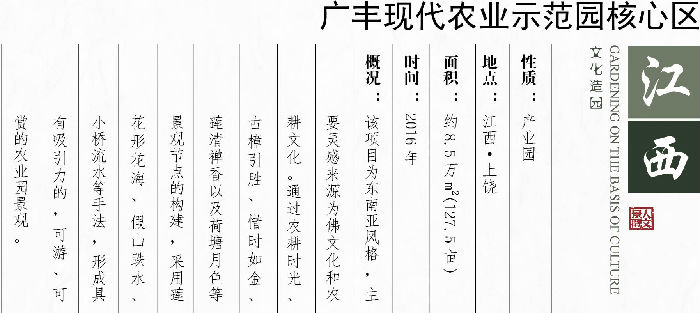 广丰现代农业示范园核心区
江西
文化造园
GARDENING ON THE BASIS OF CULTURE
人文景观
性质：产业园
地点：江西·上饶
面积：约8.5万m²(127.5亩)
时间：2016年
概况：该项目为东南亚风格，主
要灵感来源为佛文化和农
耕文化。通过农耕时光、
莲清禅香以及荷塘月色等
景观节点的构建，采用莲
花形花海、假山跌水、
小桥流水等手法，形成具
有吸引力的，可游、可
赏的农业园景观。